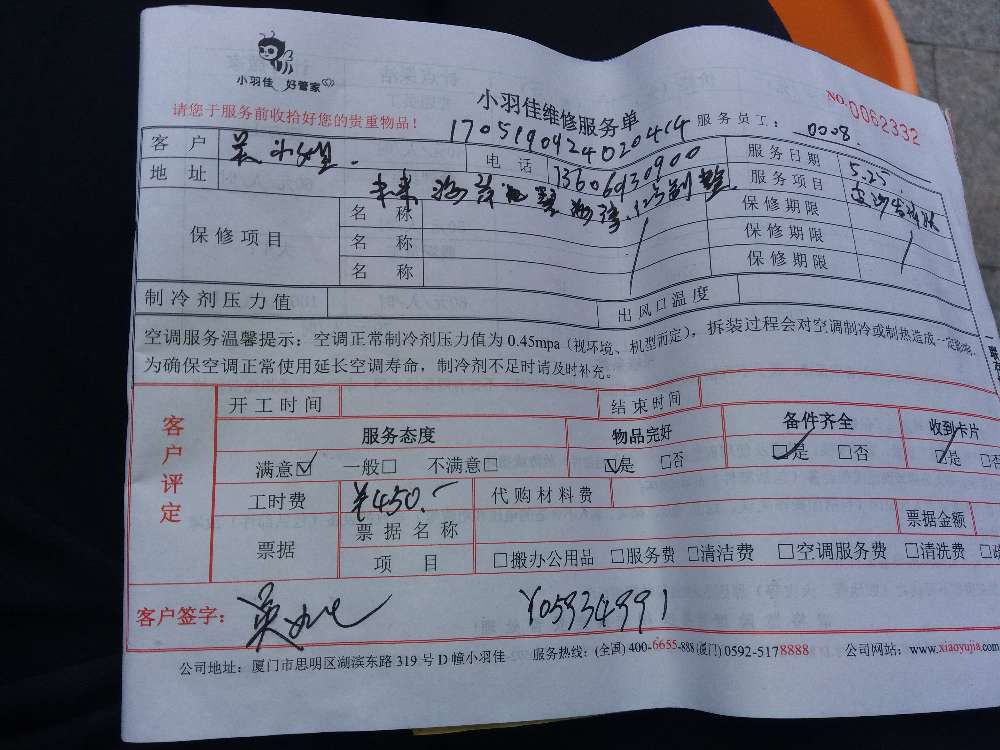 小羽佳 好管家
小羽佳维修服务单
NO.0062332
请您于服务前收拾好您的贵重物品！
1705190424020414 服务员工： 0008
客户 吴 电话 13606930900 服务日期 5.25
地址 服务项目
保修项目 名称 保修期限
名称 保修期限
名称 保修期限
制冷剂压力值 出风口温度
空调服务温馨提示：空调正常制冷剂压力值为 0.45mpa（视环境、机型而定），拆装过程会对空调制冷或制热造成一定影响，
为确保空调正常使用延长空调寿命，制冷剂不足时请及时补充。
客户评定
开工时间 结束时间
服务态度 物品完好 备件齐全 收到卡片
满意☑ 一般□ 不满意□ ☑是 □否 ☑是 □否 ☑是 □否
工时费 ¥450.- 代购材料费
票据 票据名称 票据金额
项目 □搬办公用品 □服务费 □清洁费 □空调服务费 □清洗费
客户签字： 吴 Y05934991
公司地址：厦门市思明区湖滨东路 319 号 D 幢小羽佳 服务热线：(全国) 400-6655-888 (厦门) 0592-5178888 公司网站：www.xiaoyujia.com